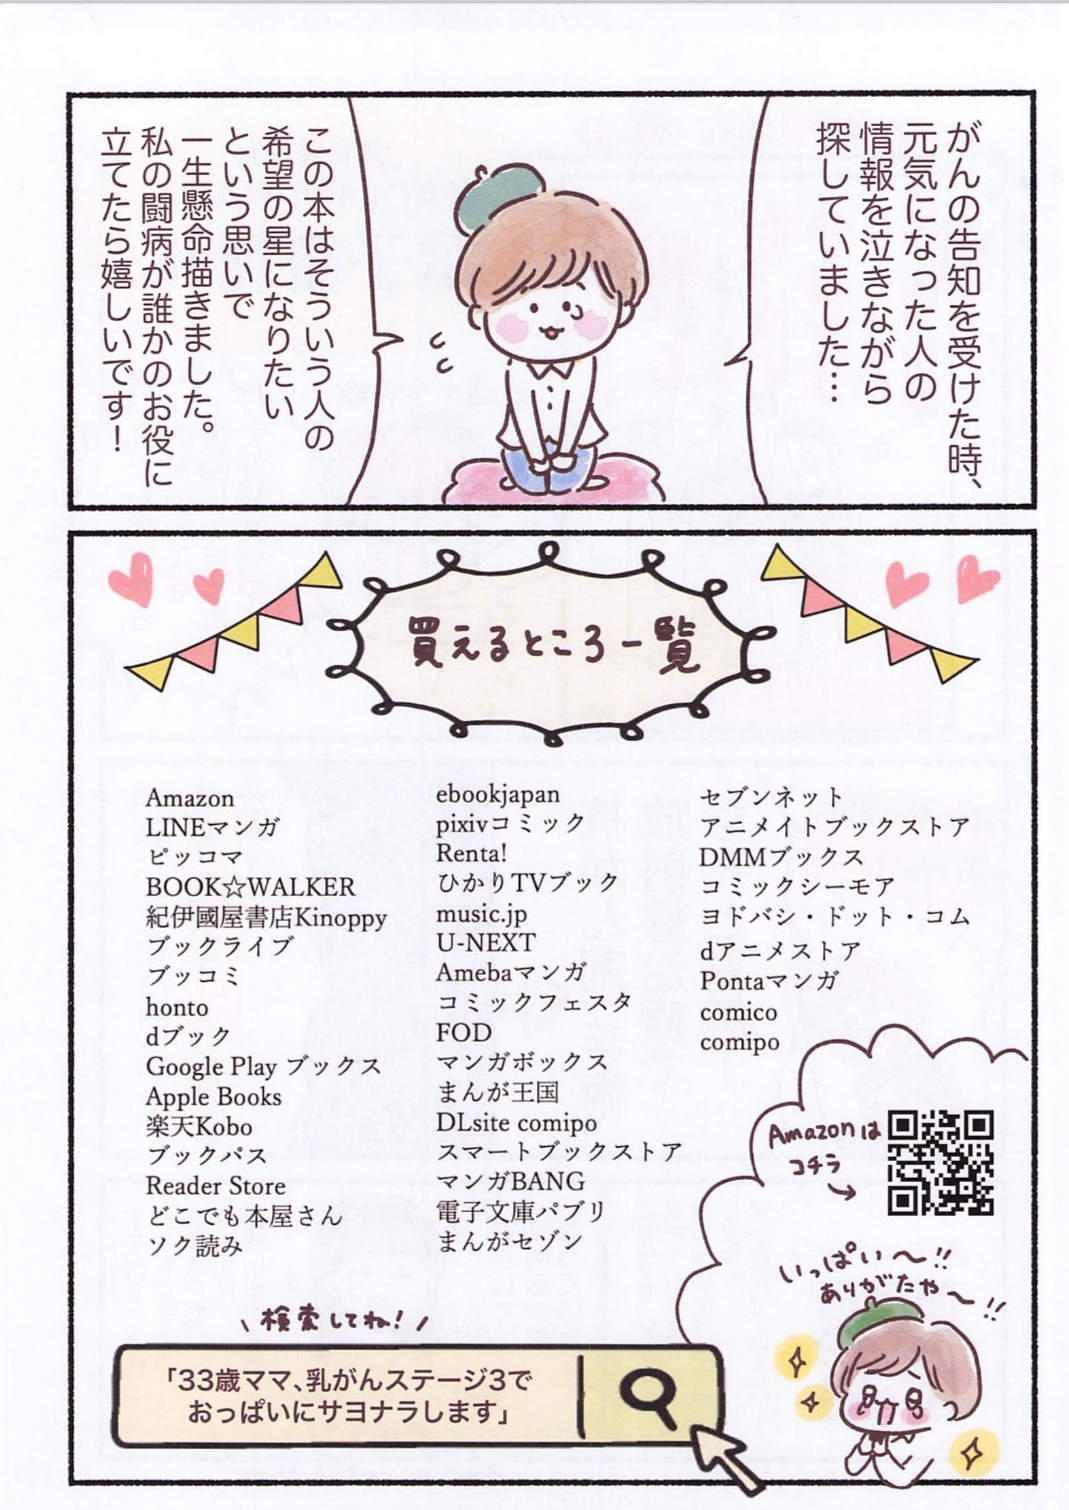 がんの告知を受けた時、
元気になった人の
情報を泣きながら
探していました…
この本はそういう人の
希望の星になりたい
という思いで
一生懸命描きました。
私の闘病が誰かのお役に
立てたら嬉しいです！
買えるところ一覧
Amazon
LINEマンガ
ピッコマ
BOOK☆WALKER
紀伊國屋書店Kinoppy
ブックライブ
ブッコミ
honto
dブック
Google Play ブックス
Apple Books
楽天Kobo
ブックパス
Reader Store
どこでも本屋さん
ソク読み
ebookjapan
pixivコミック
Renta!
ひかりTVブック
music.jp
U-NEXT
Amebaマンガ
コミックフェスタ
FOD
マンガボックス
まんが王国
DLsite comipo
スマートブックストア
マンガBANG
電子文庫パブリ
まんがセゾン
セブンネット
アニメイトブックストア
DMMブックス
コミックシーモア
ヨドバシ・ドット・コム
dアニメストア
Pontaマンガ
comico
comipo
Amazonは
コチラ
いっぱい〜!!
ありがたや〜!!
検索してね！
「33歳ママ、乳がんステージ3で
おっぱいにサヨナラします」